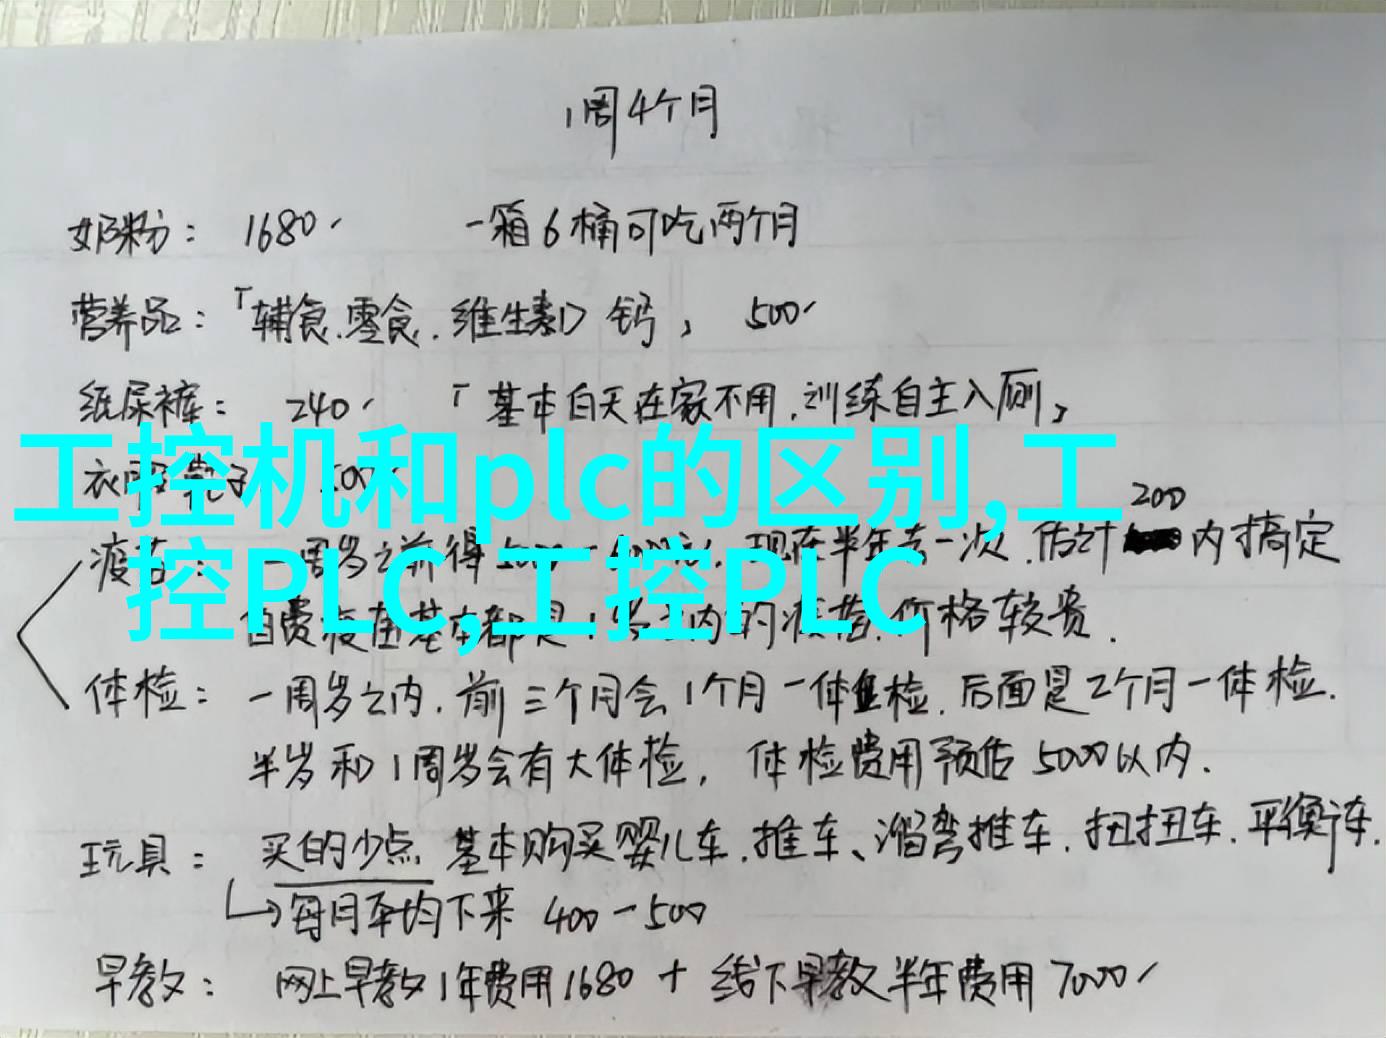 1周4个月
奶粉： 1680、 一箱6桶可吃两个月
营养品：「辅食、零食、维生素D 钙」 500、
纸尿裤： 240、 「基本白天在家不用，训练自主入厕」
工控机和plc的区别,工
衣服
200
疫苗： 一周岁之前得 现在半年去一次，估计 内搞定
控PLC,工控PLC
自费疫苗基本都是 内的疫苗，价格较贵.
体检： 一周岁之内，前三个月会1个月一体检，后面是2个月一体检.
半岁和1周岁会有大体检， 体检费用预估5000以内.
玩具： 买的少点 基本购买婴儿车、推车、溜弯推车、扭扭车、平衡车.
每月平均下来 400-500
早教： 网上早教1年费用1680 + 线下早教半年费用7000、